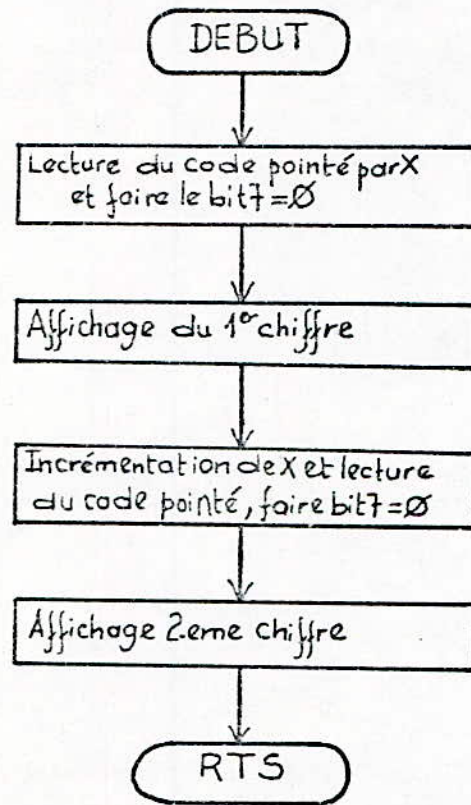 DEBUT
Lecture du code pointé par X
et faire le bit7=Ø
Affichage du 1er chiffre
Incrémentation de X et lecture
du code pointé, faire bit7=Ø
Affichage 2.eme chiffre
RTS